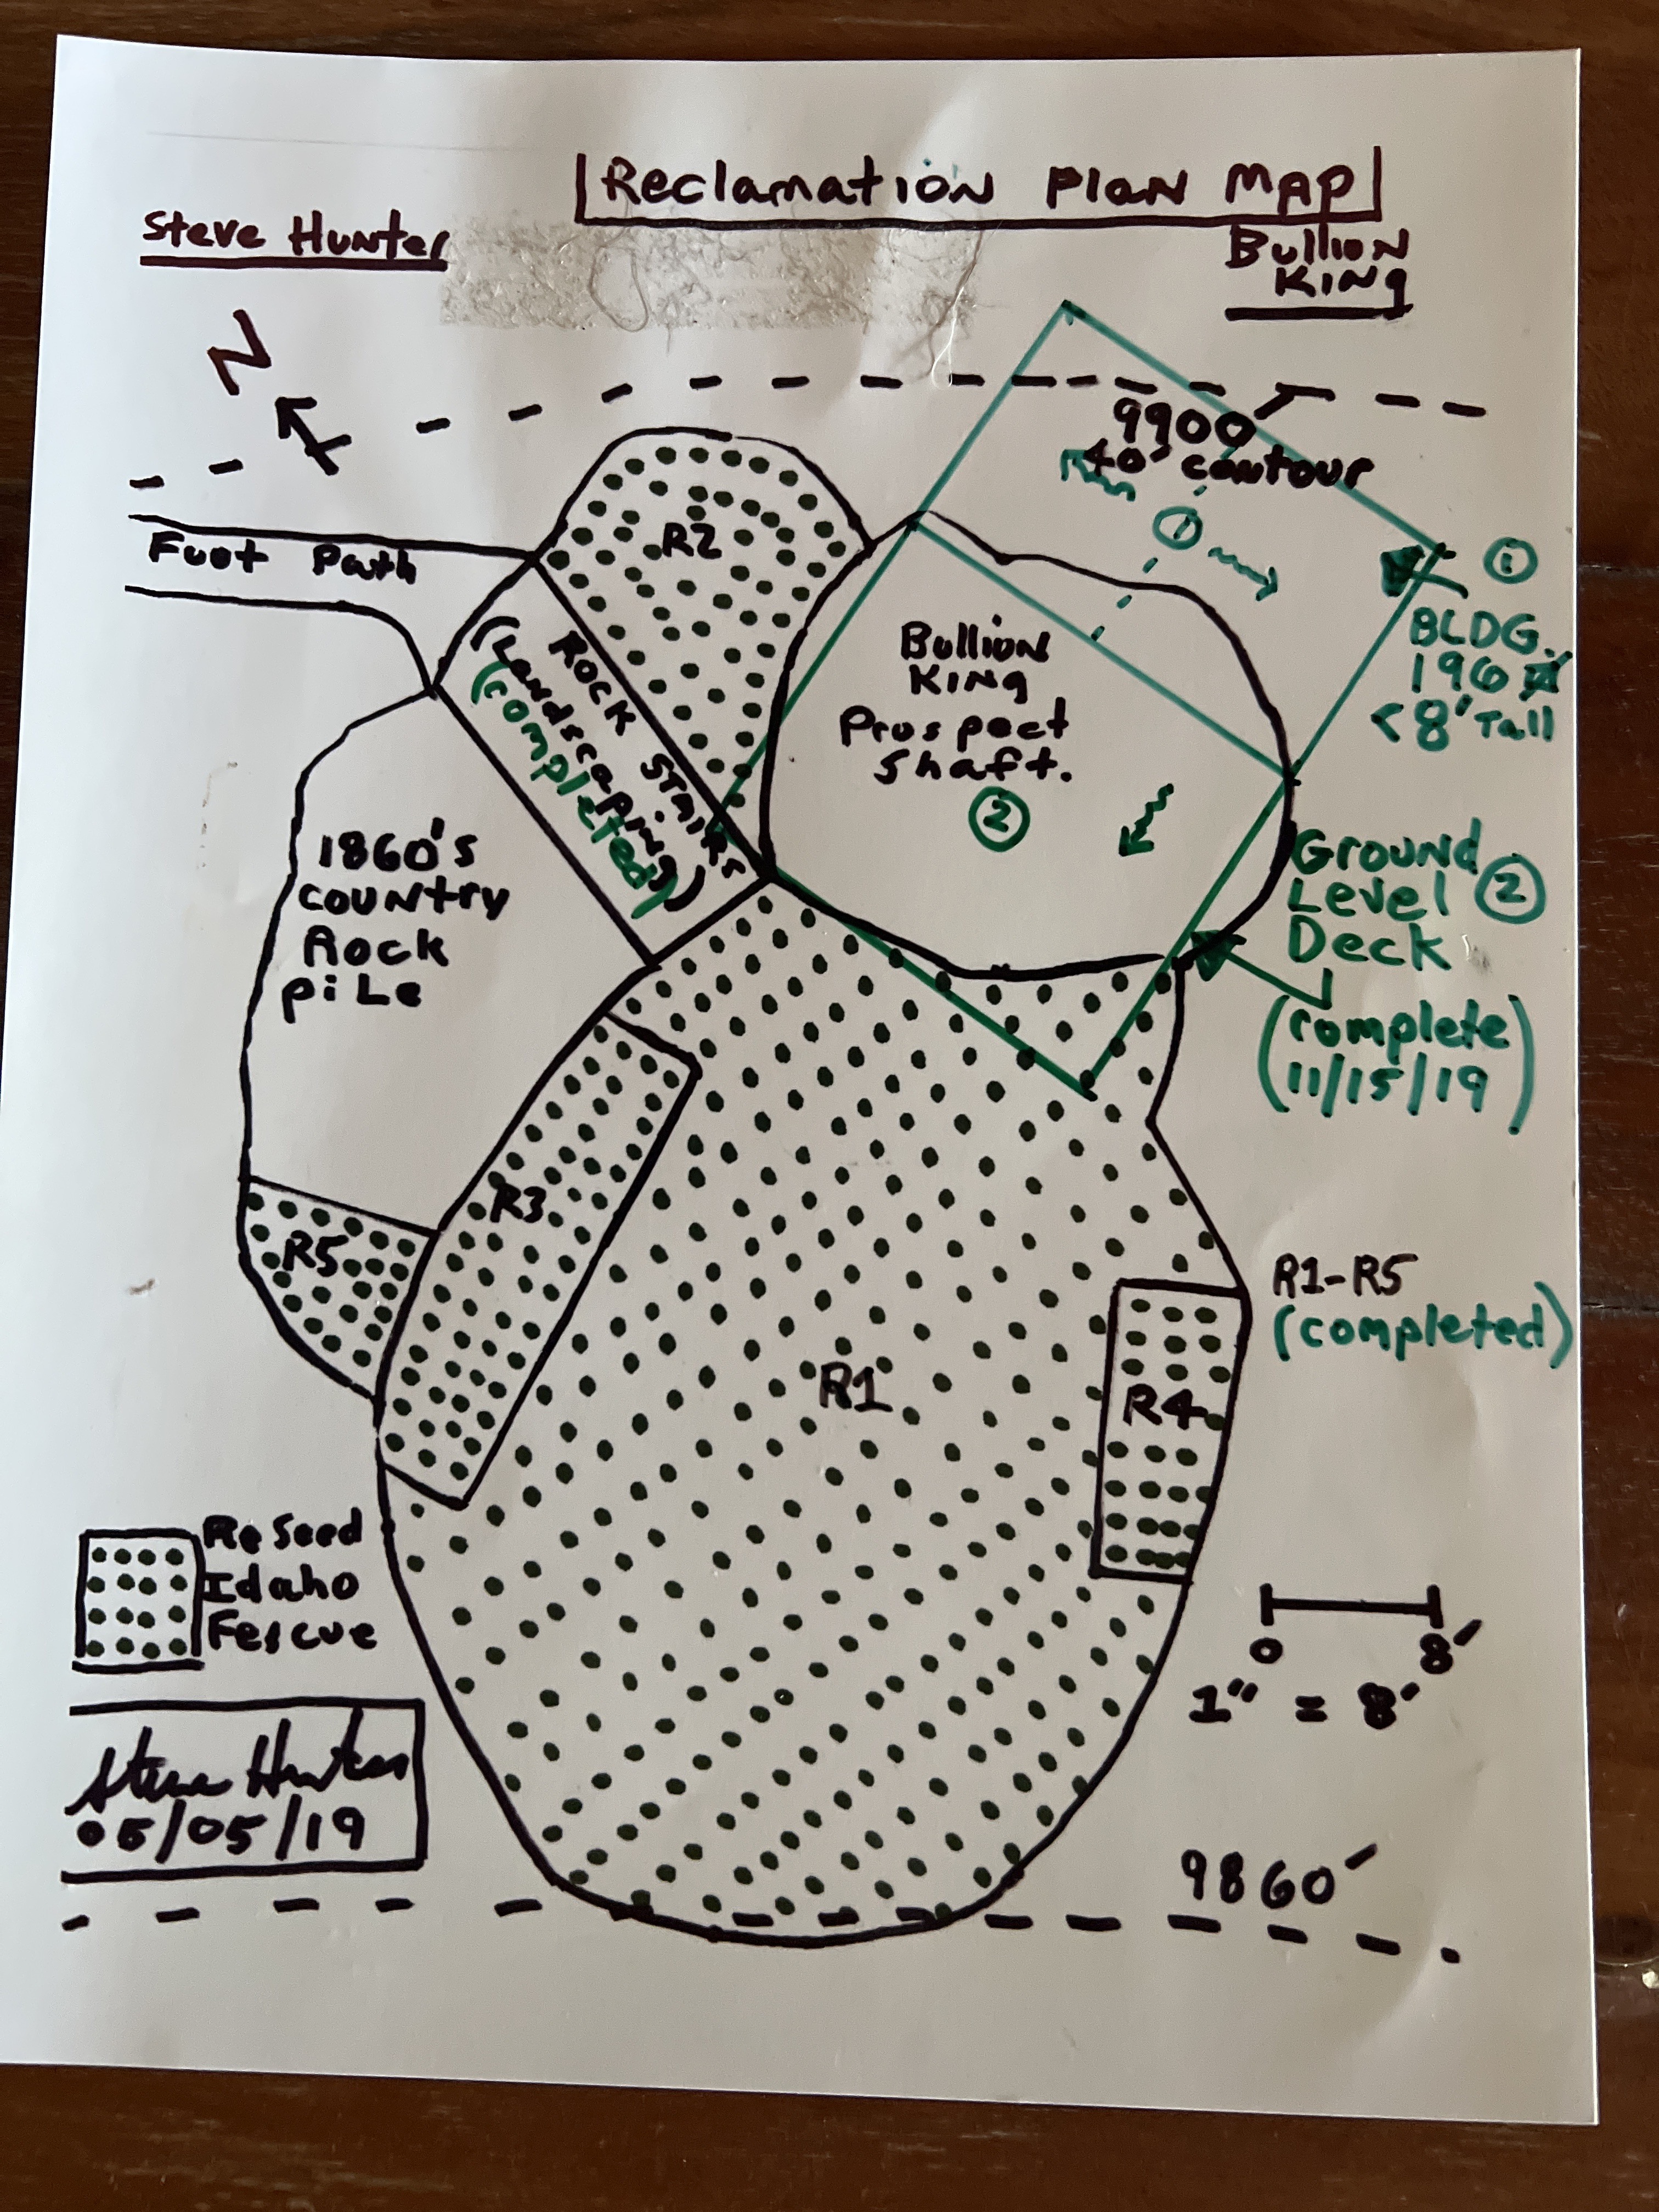 Reclamation Plan Map
Steve Hunter
Bullion
King
N
9900'
40' contour
1
Foot Path
R2
1
BLDG.
196
<8' Tall
Rock Stairs
(Landscaping)
(completed)
Bullion
King
Prospect
Shaft.
2
1860's
country
Rock
pile
Ground
Level 2
Deck
(complete)
11/15/19
R3
R5
R1-R5
(completed)
R1
R4
ReSeed
Idaho
Fescue
0 8'
1" = 8'
Steve Hunter
05/05/19
9860'